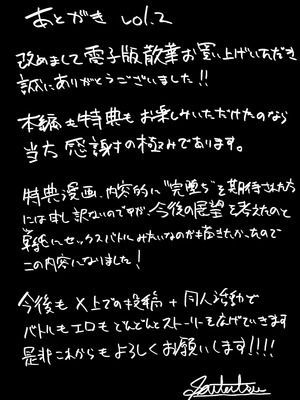 あとがき vol.2
改めまして電子版散華お買い上げいただき
誠にありがとうございました!!
本編も特典もお楽しみいただけたのなら
当方 感謝の極みであります。
特典漫画、内容的に"完堕ち"を期待された方
には申し訳ないのですが、今後の展望を考えたのと
単純にセックスバトルみたいなのが描きたかったので
この内容になりました!
今後も X上での投稿 + 同人活動で
バトルもエロもどんどんとストーリーを広げていきます
是非これからもよろしくお願いします!!!!